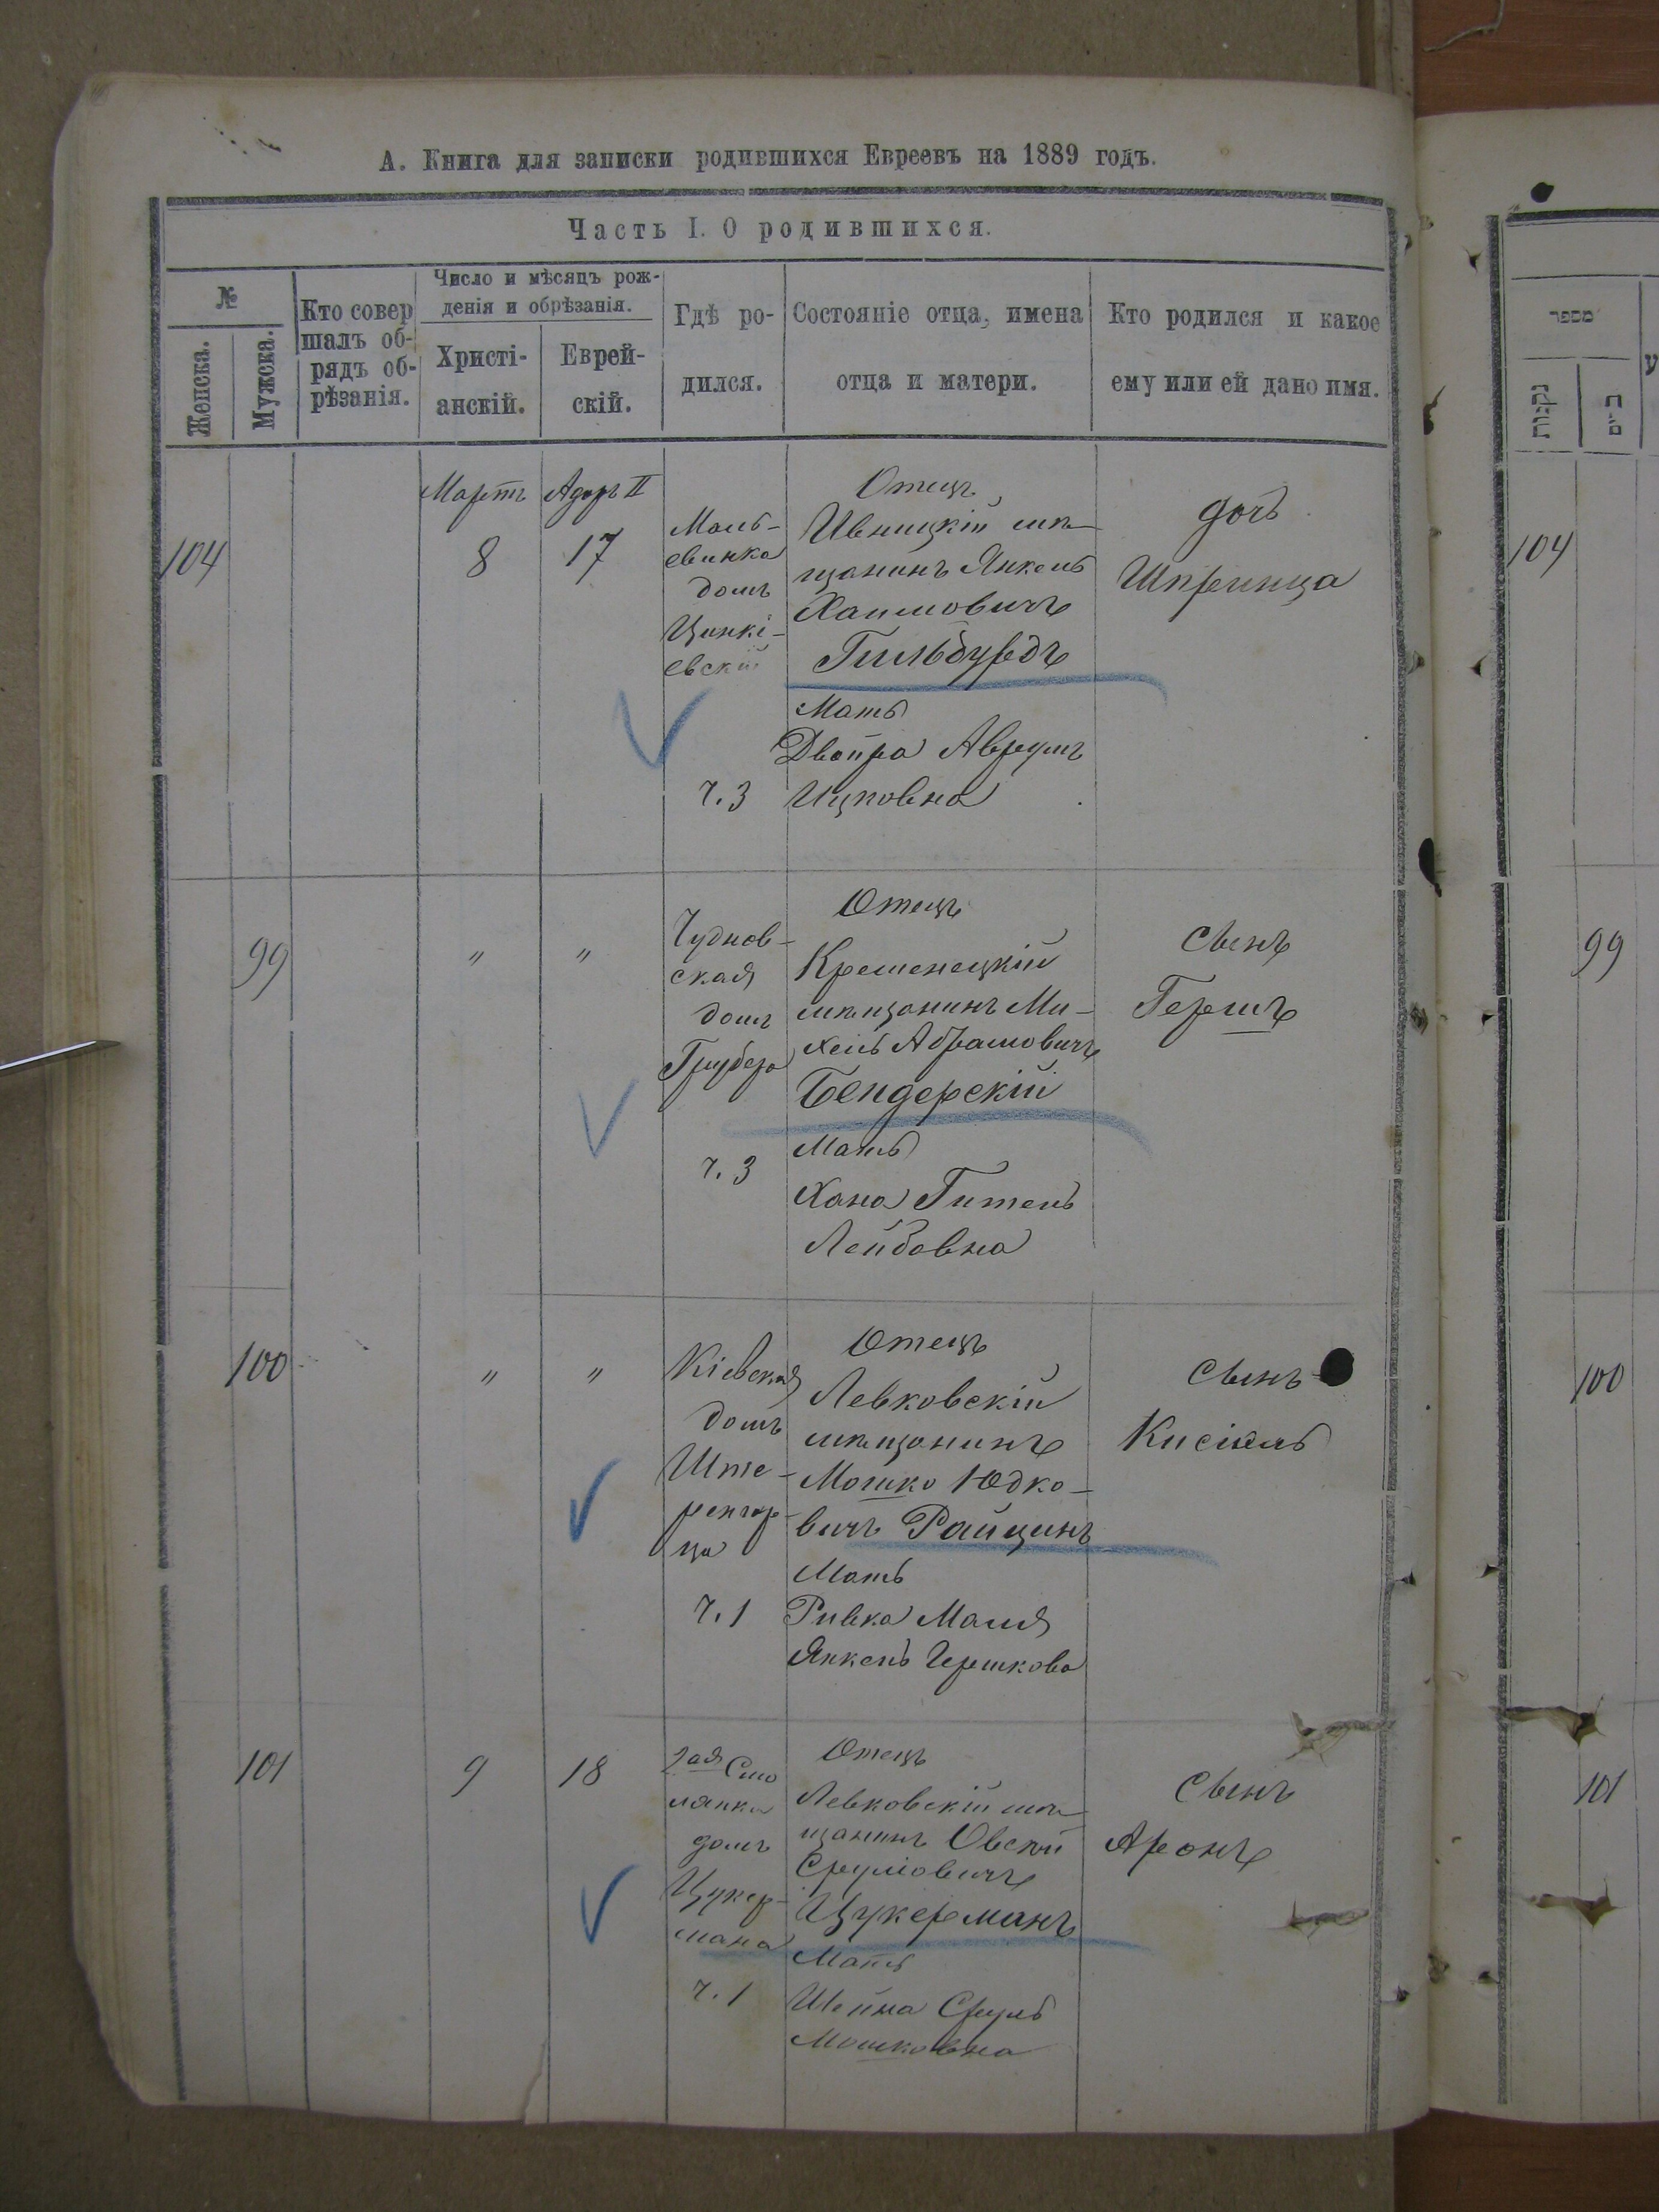 А. Книга для записки родившихся Евреевъ на 1889 годъ.
Часть I. О родившихся.
№
Женска.
Мужска.
Кто совер
шалъ об-
рядъ об-
рѣзанія.
Число и мѣсяцъ рож-
денія и обрѣзанія.
Христі-
анскій.
Еврей-
скій.
Гдѣ ро-
дился.
Состояніе отца, имена
отца и матери.
Кто родился и какое
ему или ей дано имя.
104
Мартъ
8
Адаръ II
17
домъ
ч. 3
Отецъ
Ивницкій мѣ-
щанинъ Янкель
Хаимовичъ
Гильбурдъ
Мать
Двойра Аврумъ
Ицковна
дочь
Шпринца
99
"
"
Чуднов-
ская
домъ
Грубера
ч. 3
Отецъ
Кременецкій
мѣщанинъ Ми-
хель Абрамовичъ
Бендерскій
Мать
Хана Гитель
Лейбовна
сынъ
Гершъ
100
"
"
Кіевская
домъ
Ште-
ренгар-
ца
ч. 1
Отецъ
Левковскій
мѣщанинъ
Мошко Юдко-
вичъ Райцинъ
Мать
Ривка Маля
Янкель Гершкова
сынъ
Кисіель
101
9
18
2ая Смо
лянка
домъ
Цукер-
мана
ч. 1
Отецъ
Левковскій мѣ-
щанинъ Овсей
Сруліовичъ
Цукерманъ
Мать
Шейна Сруль
Мошковна
сынъ
Аронъ
מספר
נקבות
104
99
100
101